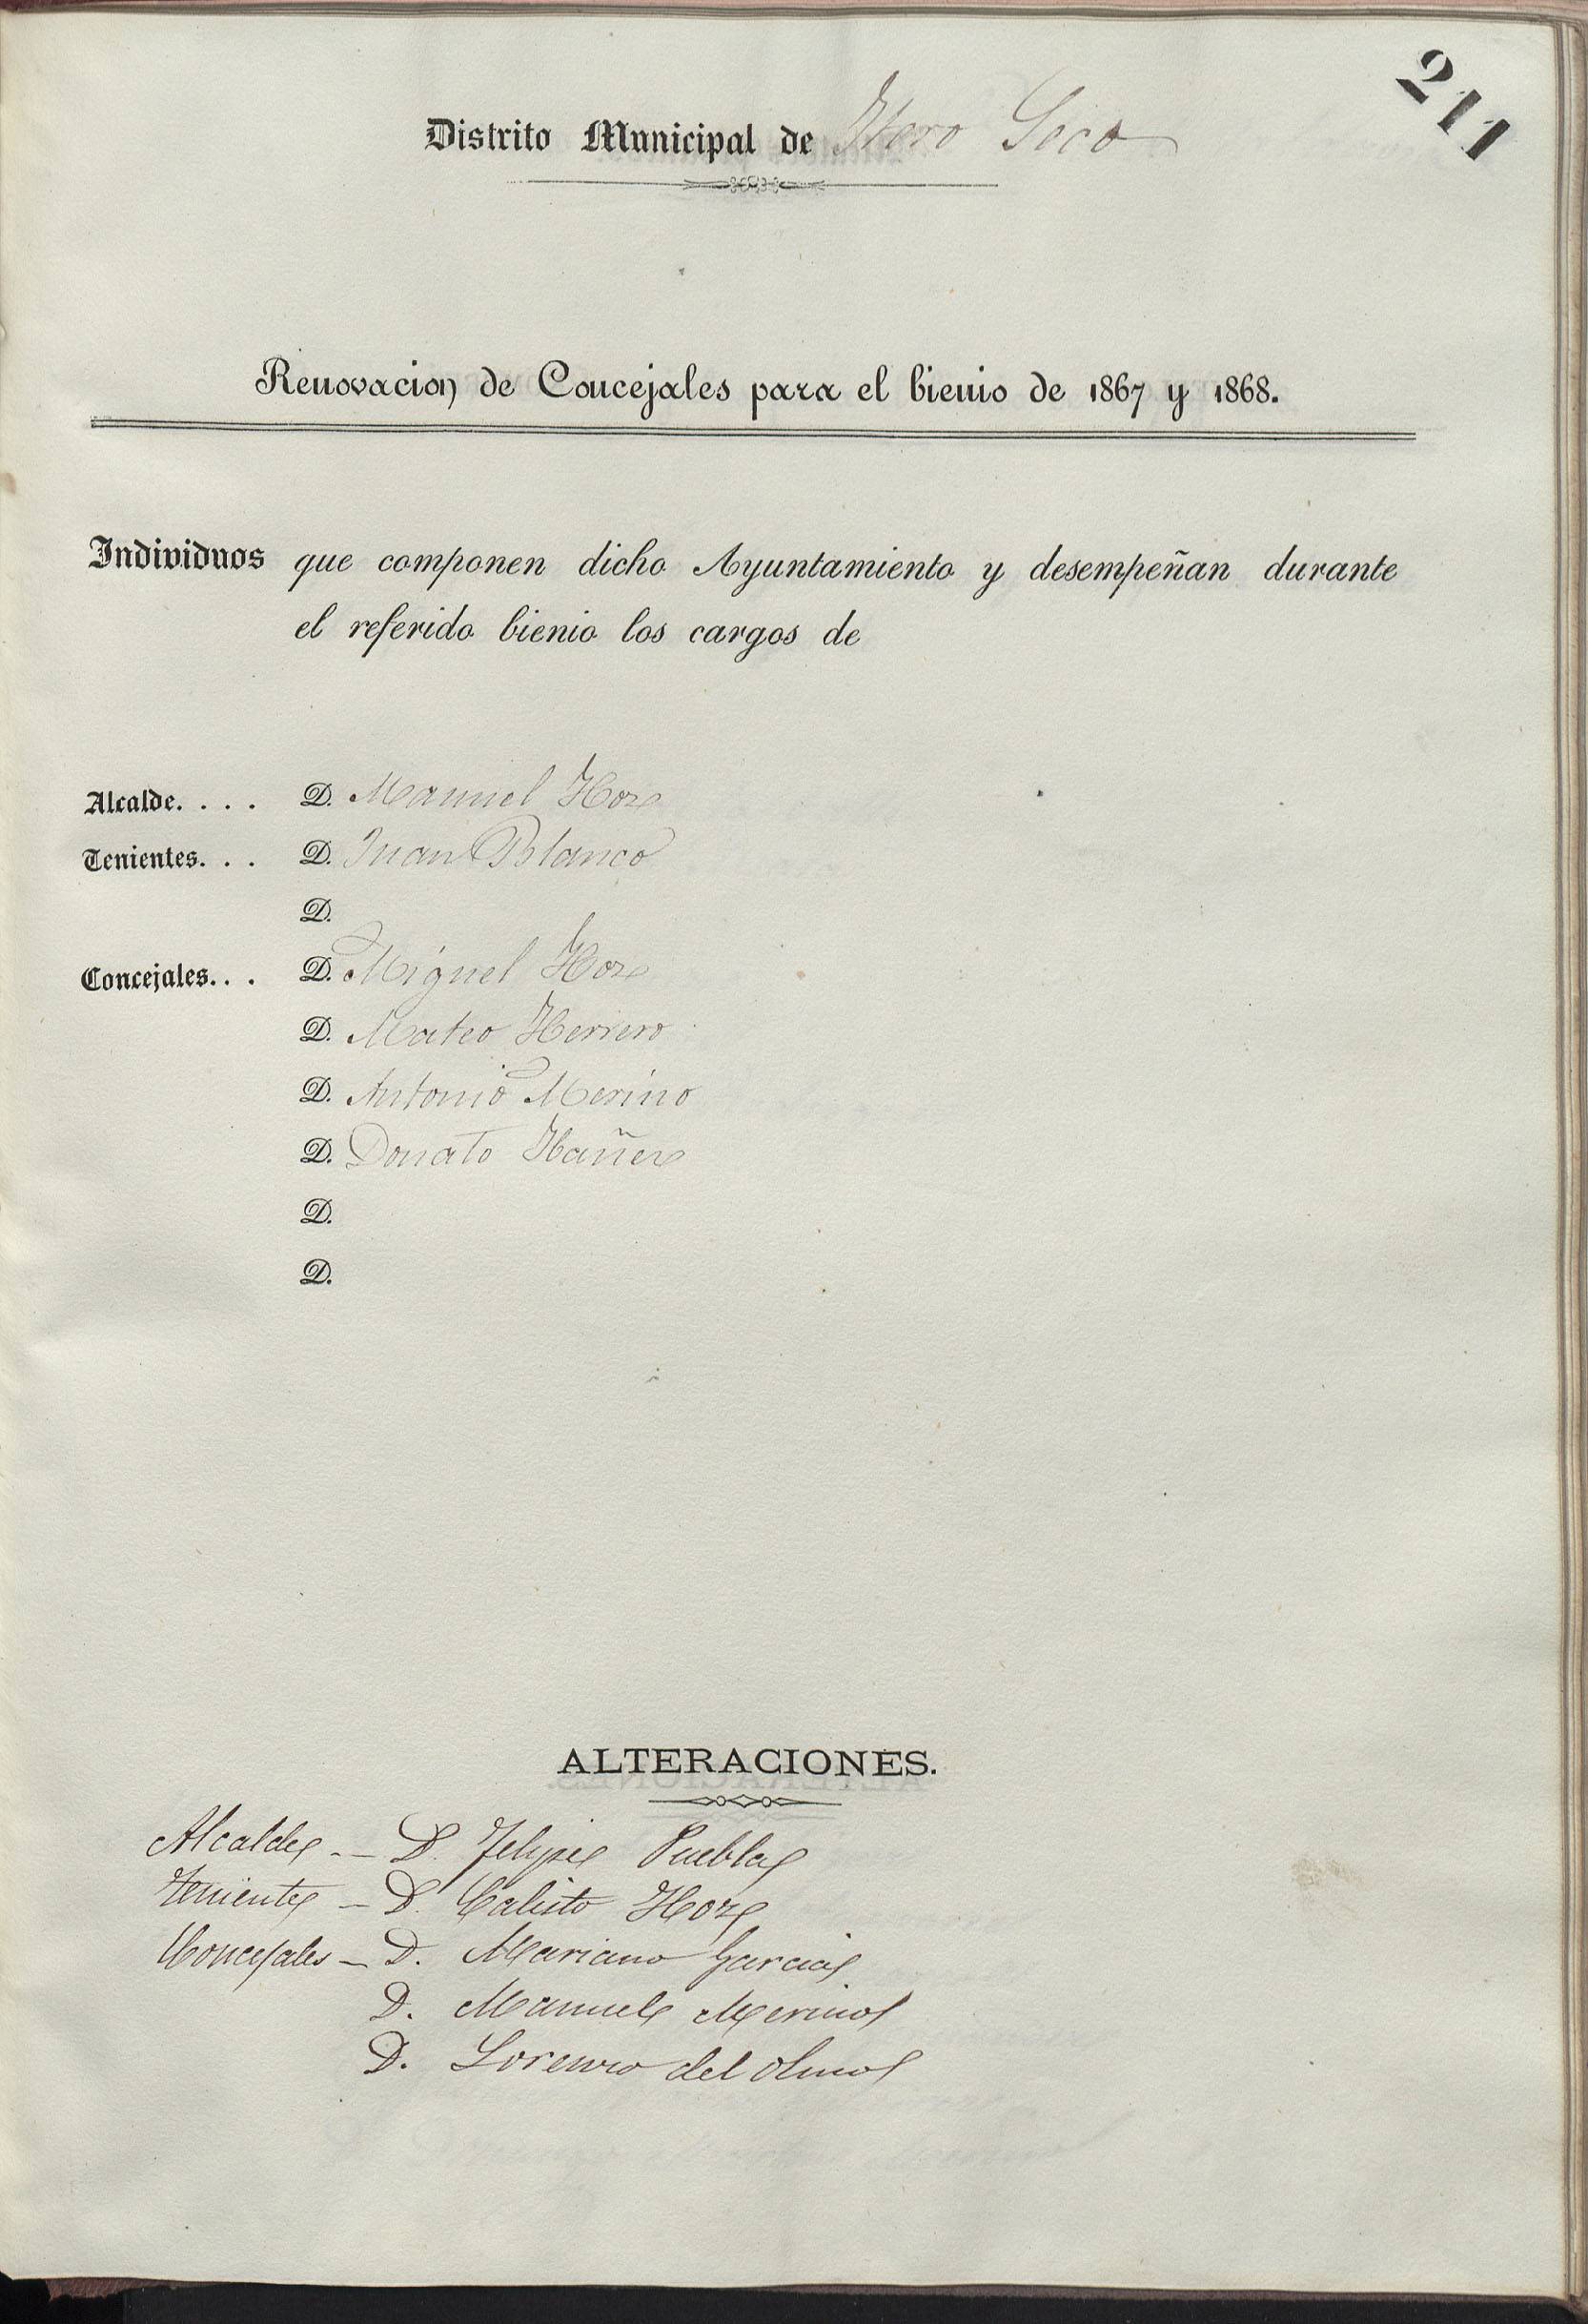 211
Distrito Municipal de Itero Seco
Renovacion de Concejales para el bienio de 1867 y 1868.
Individuos que componen dicho Ayuntamiento y desempeñan durante
el referido bienio los cargos de
Alcalde. . . . D. Manuel Hoz
Tenientes. . . D. Juan Blanco
D.
Concejales. . . D. Miguel Hoz
D. Mateo Herrero
D. Antonio Merino
D. Donato Ibañez
D.
D.
ALTERACIONES.
Alcalde - D. Felipe Puebla
Teniente - D. Calisto Hoz
Concejales - D. Mariano Garcia
D. Manuel Merino
D. Lorenzo del Olmo